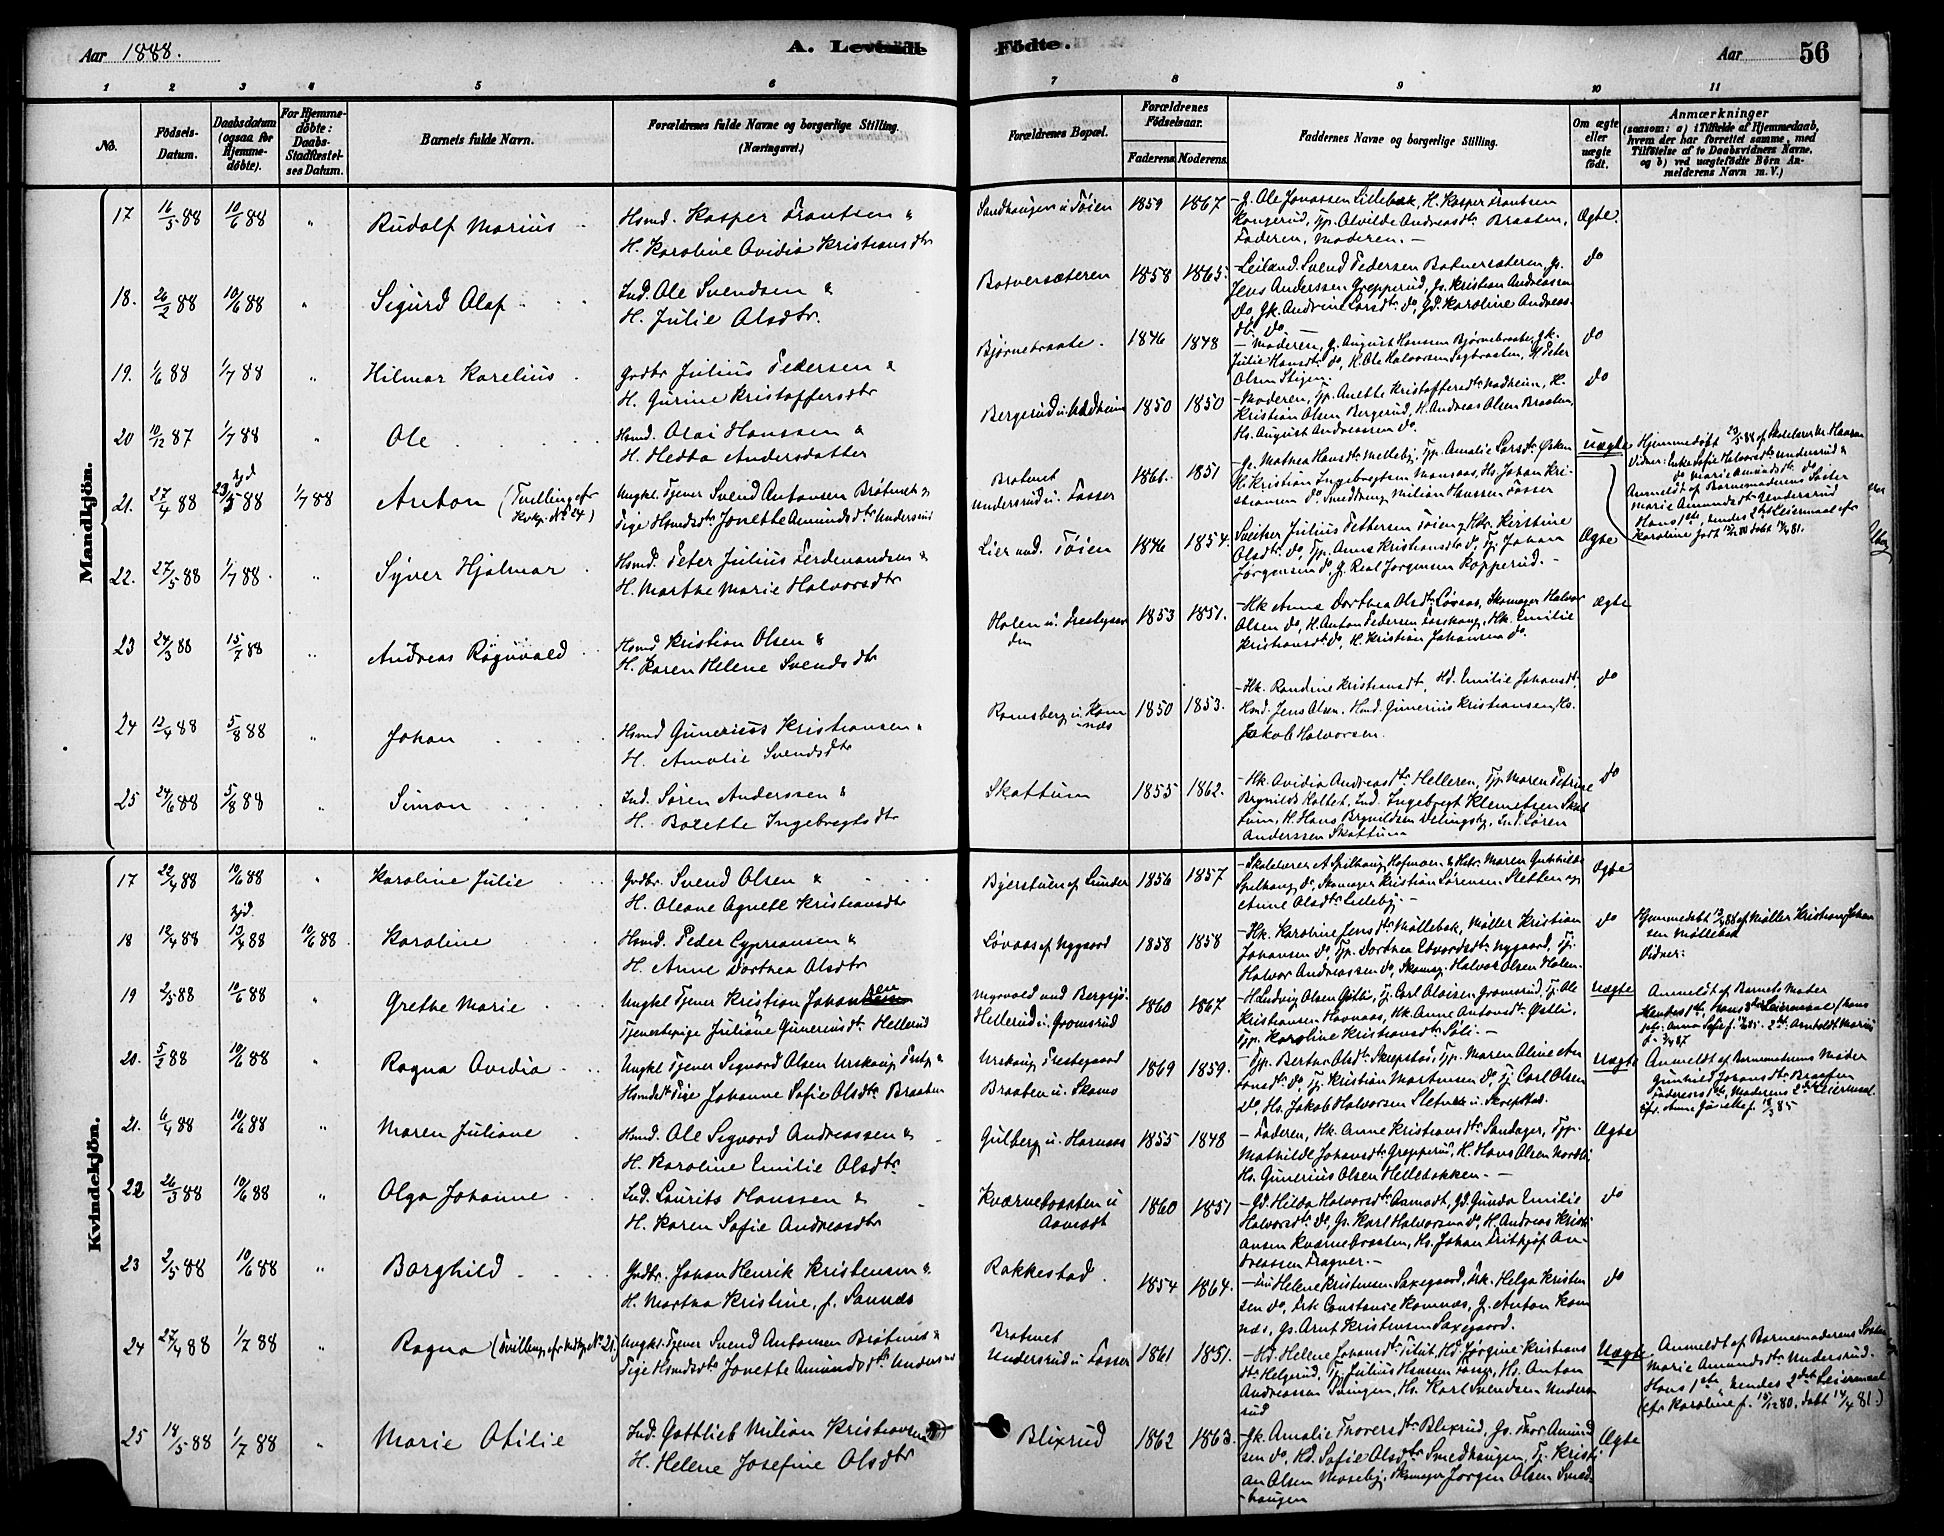 Aar 1888.
A. Levende
Födte.
Aar
56
1 2 3 4 5 6 7 8 9 10 11
No.
Födsels-Datum.
Daabsdatum (ogsaa for Hjemme-døbte).
For Hjemme-døbte: Daabs-Stadfæstel-ses Datum.
Barnets fulde Navn.
Forældrenes fulde Navne og borgerlige Stilling.
(Næringsvei.)
Forældrenes Bopæl.
Forældrenes Födselsaar.
Faderens. Moderens.
Faddernes Navne og borgerlige Stilling.
Om ægte eller uægte født.
Anmærkninger
(saasom: a) i Tilfælde af Hjemmedaab,
hvem der har forrettet samme, med
Tilföielse af to Daabsvidners Navne,
og b) ved uægtefödte Börn An-
melderens Navn m. V.)
Mandkjön.
17 16/5 88 10/6 88 " Rudolf Marius Hsmd. Kasper Frantsen &
H. Karoline Avidia Kristiansdtr
Sandhaugen u. Töien 1859 1867 - G. Ole Jonassen Lillebæk, H. Kasper Frantsen
Kongerud, Tjp. Alvilde Andreasdtr Braaten,
Faderen, Moderen. - Ægte.
18. 26/2 88 10/6 88 " Sigurd Olaf Ind. Ole Svendsen &
H. Julie Olsdtr.
Botnersæteren 1858 1865. - Leiland. Svend Pedersen Botnersæteren, Gs.
Jens Anderssen Grepperud, Gs. Kristian Andreassen
do, Gk. Andrine Larsdtr do, Gd. Karoline Andreas-
dtr do do
19. 1/6 88 1/7 88 " Hilmar Karelius Grdbr Julius Pedersen &
H. Gurine Kristoffersdtr
Bjørnebraate. 1846 1848 - Moderen, G. August Hanssen Bjørnebraate, Gk.
Julie Hansdtr do, H. Ole Halvorsen Sagbraaten, H Peter
Olsen Stigen do
20 10/12 87 1/7 88 " Ole Hsmd. Olai Hanssen &
H. Hedda Andersdatter
Bergerud u. Nadheim 1850 1850 - Moderen, Tjp. Anette Kristoffersdtr Nadheim, H.
Kristian Olsen Bergerud, H. Andreas Olsen Braaten,
Hs. August Andreassen do. do
21. 27/4 88 23/5 88 1/7 88 Anton (Tvilling cfr
Kvkj. No 24) Ungkl. Tjener Svend Antonsen Bråtenet &
Pige Hsmdsdtr Jonette Amundsdtr Undersrud
Bråtenet
Undersrud u. Fosser 1861. 1851 - G. Mathea Hansdtr Mellebÿ, Tjp. Amalie Larsdtr
H. Kristian Ingebregtsen Monsaas, Hs. Johan Kri-
stiansen do, Smeddreng Milian Hanssen Fosser Uægte
Hjemmedöbt 23/5 88 af Skolelærer M. Haavn
Vidner: Enke Sofie Halvorsdtr Undersrud &
do Marie Amundsdtr do
Anmeldt af Barnemoderens Søster
Marie Amundsdtr Undersrud
Hans 1ste, hendes 2det Leiermaal cfr
Karoline født 15/12 80 døbt 17/4 81.
22. 27/5 88 1/7 88. " Syver Hjalmar Hsmd. Peter Julius Ferdinandsen &
H. Marthe Marie Halvorsdtr
Lier und. Töien 1846 1854. Sveitser Julius Pettersen Töien, Hstr. Kirstine
Olsdtr do, Tjp. Anne Kristiansdtr do, Tj. Johan
Jørgensen do, G. Real Jørgensen Kopperud. - Ægte
23 24/3 88 15/7 88 " Andreas Rögnvald Hsmd Kristian Olsen &
H. Karen Helene Svendsdtr
Holen u. Prestegaar
den 1853 1851. - Hk Anne Dorthea Olsdtr Løvaas, Skomager Halvor
Olsen do, H. Anton Pedersen Forshaug, Hk. Emilie
Kristiansdtr do, H. Kristian Johansen do. Ægte
24 13/4 88 5/8 88 " Johan Hsmd Gunerius Kristiansen &
H. Amalie Svendsdtr
Ramsberg u. Kom
næs 1850 1853. - Hk. Randine Kristiansdt, Hd. Emilie Johansdt,
Hsmd. Jens Olsen. Hsmd. Gunerius Kristiansen, Hs.
Jakob Halvorsen. do
25 24/6 88 5/8 88 " Simon Ind. Søren Anderssen &
H. Borette Ingebregtsdtr
Skattum 1855 1862. - Hk. Avidia Andreasdtr Helleren, Tjp. Maren Petrine
Brynilds Koltet, Ind. Ingebregt Klemetsen Skat
tum, H. Hans Brynildsen Velingsby, Ind. Søren
Anderssen Skattum do
Kvindekjön.
17 22/4 88 10/6 88 " Karoline Julie Grdbr. Svend Olsen &
H. Oleane Agnete Kristiansdtr
Byerstuen af Lunder 1856 1857 - Skolelærer A Spilhaug Hofmoen & Hstr. Maren Gunhilde
Spilhaug do, Skomager Kristian Sørensen Sletten og
Anne Olsdtr Lilleby. - Ægte
18 12/4 88 13/4 88 10/6 88. Karoline Hsmd. Peder Cyprianssen &
H. Anne Dorthea Olsdtr
Løvaas af Nygaard 1858 1858 - Hk. Karoline Jensdtr Møllebæk, Møller Kristian
Johansen do, Tjp. Dorthea Edvardsdtr Nygaard, Tj.
Halvor Andreassen do, Skomag. Halvor Olsen Holen. do
Hjemmedøbt 13/4 88 af Møller Kristian Johan
sen Møllebæk
Vidner:
19 2/5 88 10/6 88 " Grethe Marie Ungkl Tjener Kristian Johansen
Tjenestepige Juliane Guneriusdtr Hellerud
Myrvold und Bergsjø.
Hellerud u. Gromsrud 1860 1867 - H Ludvig Olsen Götli, Tj. Carl Olaisen Gromsrud, Tj. Ole
Kristiansen Havnaas, Hk. Anne Antonsdtr Østli,
Tjp. Karoline Kristiansdtr Sæli. - Uægte
Anmeldt af Barnets Moder
Hendes 1ste, Hans 3die Leiermaal (hans
20. 5/2 88 10/6 88 " Ragna Avidia Ungkl Tjener Sigvard Olsen Urskoug Prestg &
Hsmdsdt Pige Johanne Sofie Olsdtr Braaten
Urskoug Prestegaard
Braaten u. Skams 1869 1859. - Tjp. Berthe Olsdtr Skrepstad, Tjp. Maren Oline An
tonsdtr do, Tj. Kristian Martinsen do, Tj Carl Olsen
do, Hs. Jakob Halvorsen Sletner u Skrepstad. Uægte
Anmeldt af Barnemoderens Moder
Gunhild Johansdtr Braaten
Faderens 1ste, Moderens 2det Leiermaal
21. 6/4 88 10/6 88 " Maren Juliane Hsmd. Ole Sigvard Andreassen &
H. Karoline Emilie Olsdtr
Gulberg u. Harnaas 1855 1848 - Faderen, Hk. Anne Kristiansdtr Sandager, Tjp.
Mathilde Johansdtr Grepperud, H. Hans Olsen Nordli
Hs. Gunerius Olsen Hellebækken - Ægte
22 26/3 88 10/6 88 " Olga Johanne Ind. Laurits Hanssen &
H. Karen Sofie Andreasdtr
Kværnebraaten u
Aamodt 1860 1851 - Gd. Hilda Halvorsdtr Aamodt, Gd. Gunda Emilie
Halvorsdtr do, Gs. Karl Halvorsen do, H. Andreas Kristi-
ansen Kværnebraaten, Hs. Johan Fritjof An-
dreassen Fragner. - do
23 2/5 88 10/6 88 " Borghild Grdbr. Johan Henrik Kristensen &
H. Martha Kristine, f. Sannæs
Rakkestad. 1854 1864. - Helene Kristensen Saxegaard, Frk. Helga Kristen
sen do, Frk Constance Komnæs, G. Anton Kom
næs, Gs. Arnt Kristensen Saxegaard. do
24 27/4 88 1/7 88 " Ragna (Tvilling, cfr Mdkjøn No 21.) Ungkl. Tjener Svend Antonsen Bråtenet &
Pige Hsmdsdtr Jonette Amundsdtr Undersrud
Bråtenet
Undersrud u Fosser 1861 1851. - Hd. Helene Johansdtr Titut, Hd. Jørgine Kristians
dtr Helgerud, Tj. Julius Hansen Haug, Hs. Anton
Andreassen Svingen, Hs. Karl Svendsen Unders
rud Uægte
Anmeldt af Barnemoderens Søster
Marie Amundsdtr Undersrud.
Hans 1ste, hendes 2det Leiermaal
(cfr Karoline f. 15/12 80, døbt 17/4 81.)
25 18/5 88 1/7 88 " Marie Otilie Ind. Gottlieb Milian Kristiansen
H. Helene Josefine Olsdtr
Blixrud 1862 1863. - Gk. Amalie Thorersdtr Blixrud, Gs. Thor Amund
sen do, Hd. Sofie Olsdtr Smedhaugen, Tj. Kristi
an Olsen Moseby, Skomager Jørgen Olsen Smed-
haugen Ægte